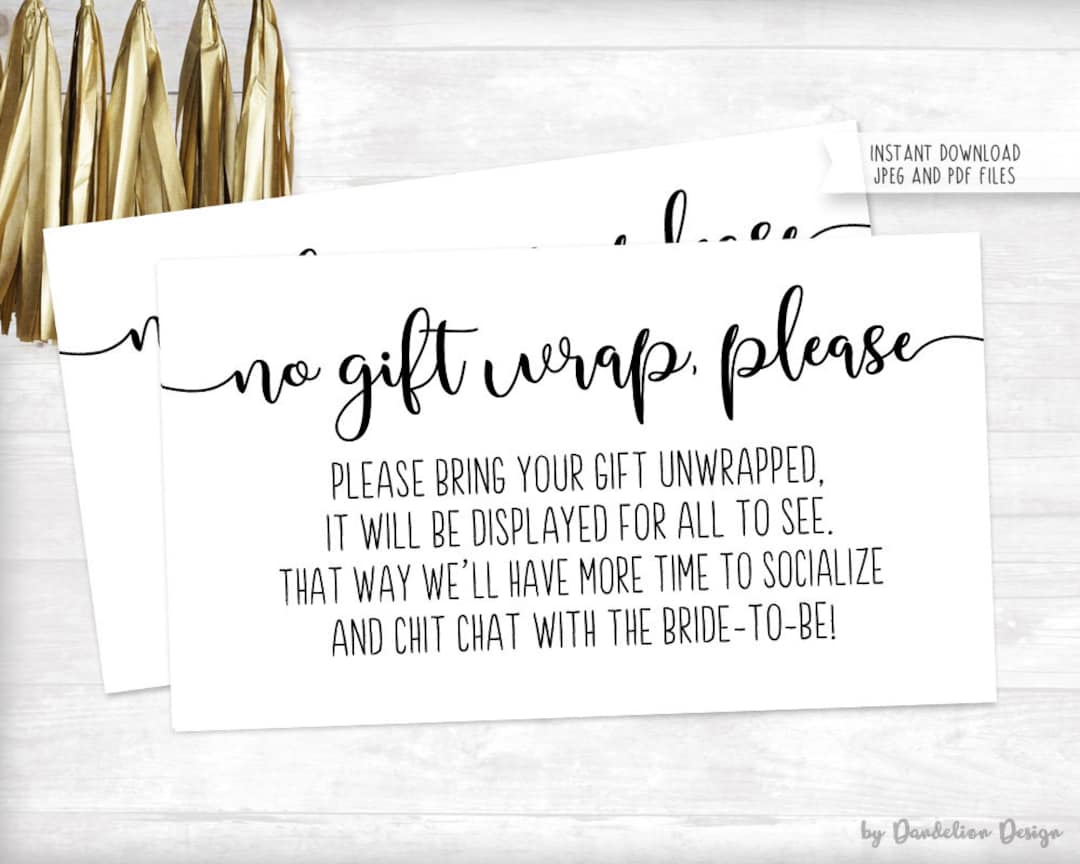 INSTANT DOWNLOAD
JPEG AND PDF FILES
no gift wrap, please
PLEASE BRING YOUR GIFT UNWRAPPED,
IT WILL BE DISPLAYED FOR ALL TO SEE.
THAT WAY WE'LL HAVE MORE TIME TO SOCIALIZE
AND CHIT CHAT WITH THE BRIDE-TO-BE!
by Dandelion Design